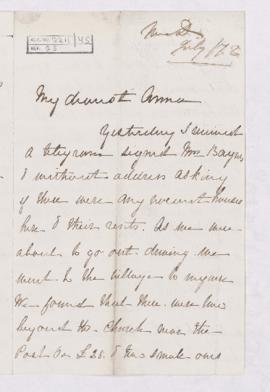 July 1/22
My dearest Anna
Yesterday I received
a telegram signed Mrs. Baynes
& without address asking
if there were any vacant houses
here & their rents. As we were
about to go out driving we
went to the village to inquire
We found that there were two
beyond the Church near the
Post for £25. & two small ones